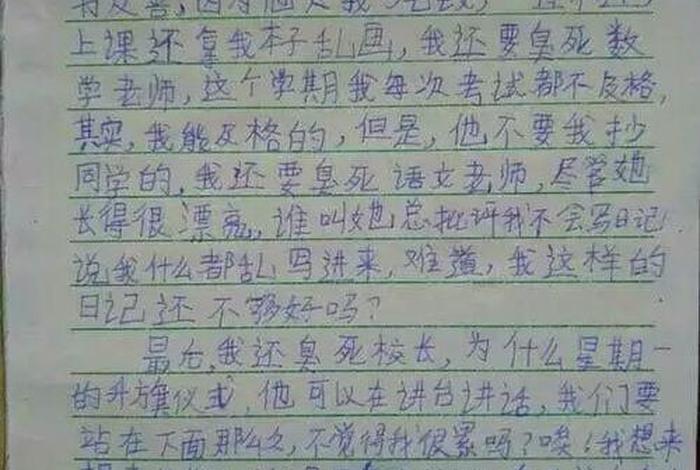 上课还拿我本子乱画，我还要臭死数
学老师，这个学期我每次考试都不及格，
其实，我能及格的，但是，他不要我抄
同学的，我还要臭死语文老师，尽管她
长得很漂亮，谁叫她总批评我不会写日记，
说我什么都乱写进来，难道，我这样的
日记还不够好吗？
最后，我还臭死校长，为什么星期一
的升旗仪式，他可以在讲台讲话，我们要
站在下面那么久，不觉得我很累吗？唉！我想来